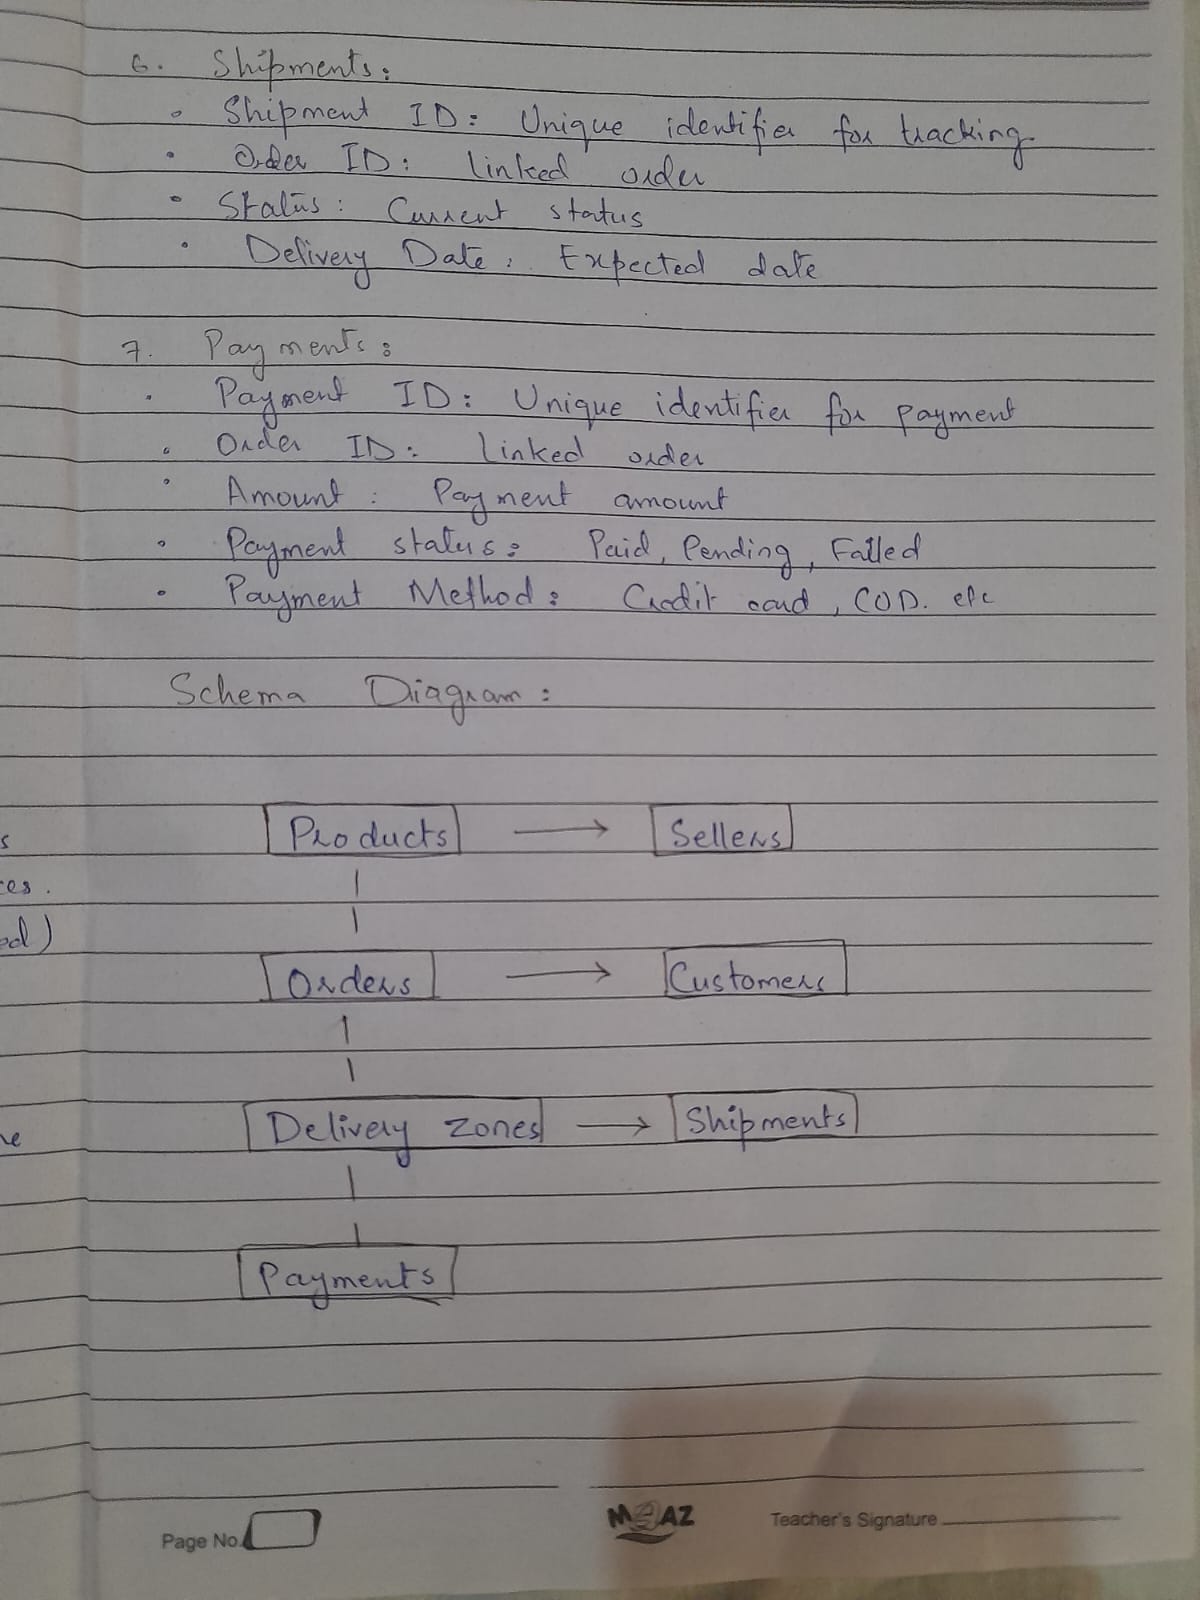 6. Shipments:
• Shipment ID: Unique identifier for tracking
• Order ID: linked order
• Status: Current status
• Delivery Date: Expected date
7. Payments:
• Payment ID: Unique identifier for payment
• Order ID: Linked order
• Amount: Payment amount
• Payment status: Paid, Pending, Failed
• Payment Method: Credit card, COD. etc
Schema Diagram:
Products → Sellers
Orders → Customers
Delivery zones → Shipments
Payments
Page No.
MOAZ
Teacher's Signature